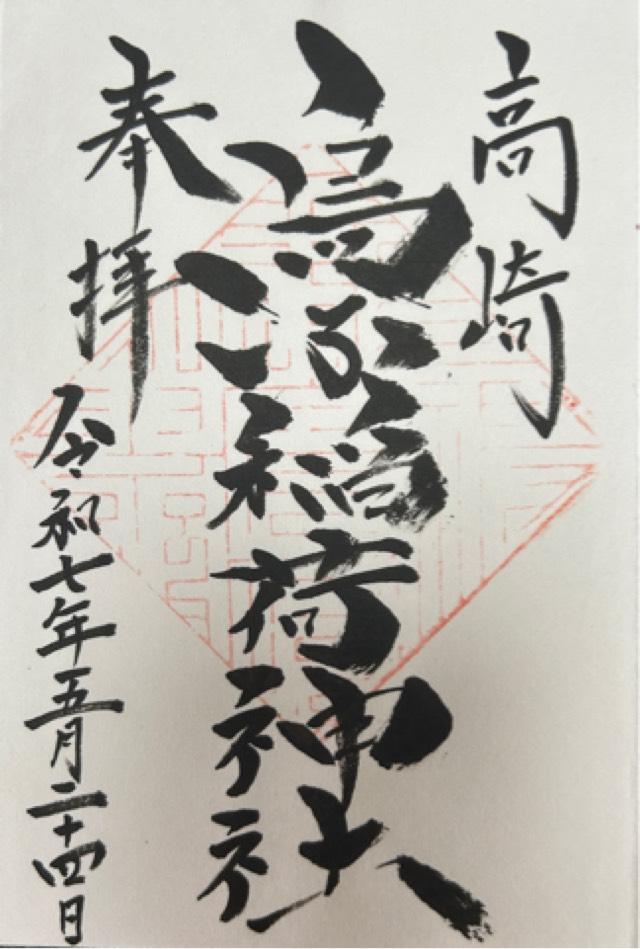 高崎
濠稲荷神社
奉拝
令和七年五月二十四日